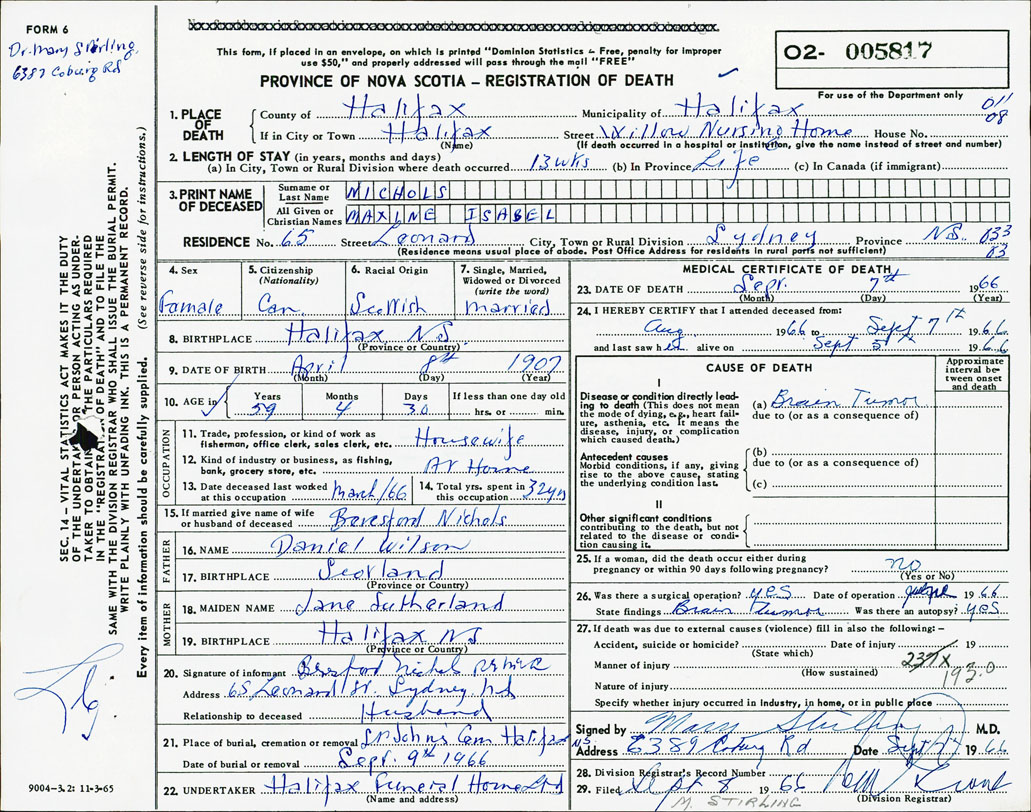 FORM 6
Dr. Mary Stirling,
6389 Coburg Rd
This form, if placed in an envelope, on which is printed "Dominion Statistics - Free, penalty for improper
use $50," and properly addressed will pass through the mail "FREE"
PROVINCE OF NOVA SCOTIA – REGISTRATION OF DEATH
02- 005817
For use of the Department only
011
08
1. PLACE OF DEATH
County of Halifax Municipality of Halifax
If in City or Town Halifax Street Willow Nursing Home House No.
(Name) (If death occurred in a hospital or institution, give the name instead of street and number)
2. LENGTH OF STAY (in years, months and days)
(a) In City, Town or Rural Division where death occurred 13 wks (b) In Province Life (c) In Canada (if immigrant)
3. PRINT NAME OF DECEASED
Surname or Last Name NICHOLS
All Given or Christian Names MAXINE ISABEL
RESIDENCE No. 65 Street Leonard City, Town or Rural Division Sydney Province NS. 033
03
(Residence means usual place of abode. Post Office Address for residents in rural parts not sufficient)
4. Sex
Female
5. Citizenship
(Nationality)
Can
6. Racial Origin
Scottish
7. Single, Married,
Widowed or Divorced
(write the word)
Married
8. BIRTHPLACE Halifax NS
(Province or Country)
9. DATE OF BIRTH April 8th 1907
(Month) (Day) (Year)
10. AGE in
Years
59
Months
4
Days
30
If less than one day old
hrs. or min.
OCCUPATION
11. Trade, profession, or kind of work as
fishermon, office clerk, sales clerk, etc. Housewife
12. Kind of industry or business, as fishing,
bank, grocery store, etc. At Home
13. Date deceased last worked
at this occupation March/66
14. Total yrs. spent in
this occupation 32 yrs
15. If married give name of wife
or husband of deceased Beresford Nichols
FATHER
16. NAME Daniel Wilson
17. BIRTHPLACE Scotland
(Province or Country)
MOTHER
18. MAIDEN NAME Jane Sutherland
19. BIRTHPLACE Halifax NS
(Province or Country)
20. Signature of informant Beresford Nichol
Address 65 Leonard St. Sydney NS
Relationship to deceased Husband
21. Place of burial, cremation or removal St John's Cem Halifax NS
Date of burial or removal Sept. 9th 1966
22. UNDERTAKER Halifax Funeral Home Ltd
(Name and address)
MEDICAL CERTIFICATE OF DEATH
23. DATE OF DEATH Sept. 7th 1966
(Month) (Day) (Year)
24. I HEREBY CERTIFY that I attended deceased from:
Aug 1966 to Sept 7th 1966
and last saw her alive on Sept 5th 1966
CAUSE OF DEATH
Approximate
interval be-
tween onset
and death
I
Disease or condition directly lead-
ing to death (This does not mean
the mode of dying, e.g., heart fail-
ure, asthenia, etc. It means the
disease, injury, or complication
which caused death.)
(a) Brain Tumor
due to (or as a consequence of)
Antecedent causes
Morbid conditions, if any, giving
rise to the above cause, stating
the underlying condition last.
(b)
due to (or as a consequence of)
(c)
II
Other significant conditions
contributing to the death, but not
related to the disease or condi-
tion causing it.
25. If a woman, did the death occur either during
pregnancy or within 90 days following pregnancy? no
(Yes or No)
26. Was there a surgical operation? yes Date of operation 1966
State findings Brain Tumor Was there an autopsy? yes
27. If death was due to external causes (violence) fill in also the following: –
Accident, suicide or homicide? Date of injury 19
(State which)
Manner of injury 237X
(How sustained) 193.0
Nature of injury
Specify whether injury occurred in industry, in home, or in public place
Signed by Mary Stirling M.D.
Address 6389 Coburg Rd Date Sept 7 1966
28. Division Registrar's Record Number
29. Filed Sept 8 1966
(Division Registrar)
M. STIRLING
SEC. 14 – VITAL STATISTICS ACT MAKES IT THE DUTY
OF THE UNDERTAKER OR PERSON ACTING AS UNDER-
TAKER TO OBTAIN THE PARTICULARS REQUIRED
IN THE "REGISTRATION OF DEATH" AND TO FILE THE
SAME WITH THE DIVISION REGISTRAR WHO SHALL ISSUE THE BURIAL PERMIT.
WRITE PLAINLY WITH UNFADING INK. THIS IS A PERMANENT RECORD.
Every item of information should be carefully supplied. (See reverse side for instructions.)
9004-3.2: 11-3-65